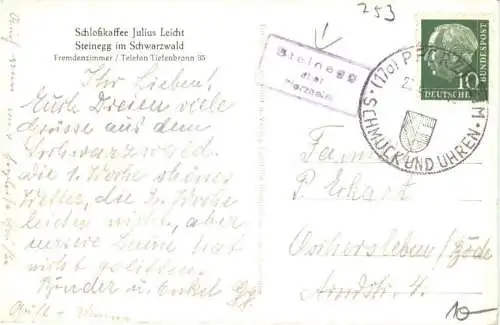 253
Schloßkaffee Julius Leicht
Steinegg im Schwarzwald
Fremdenzimmer / Telefon Tiefenbronn 85
Steinegg
über
Pforzheim
(17a) PFORZHEIM
SCHMUCK UND UHREN
10
DEUTSCHE
BUNDESPOST
Ihr Lieben!
Euch Dreien viele
Grüsse aus dem
Schwarzwald.
die 1. Woche schönes
Wetter, die 2. Woche
leider nicht, aber
unsere Laune hat
nicht gelitten.
Bruder u. Onkel
Familie
P. Erhart
Oschersleben/Bode
Arndtstr. 4.
10